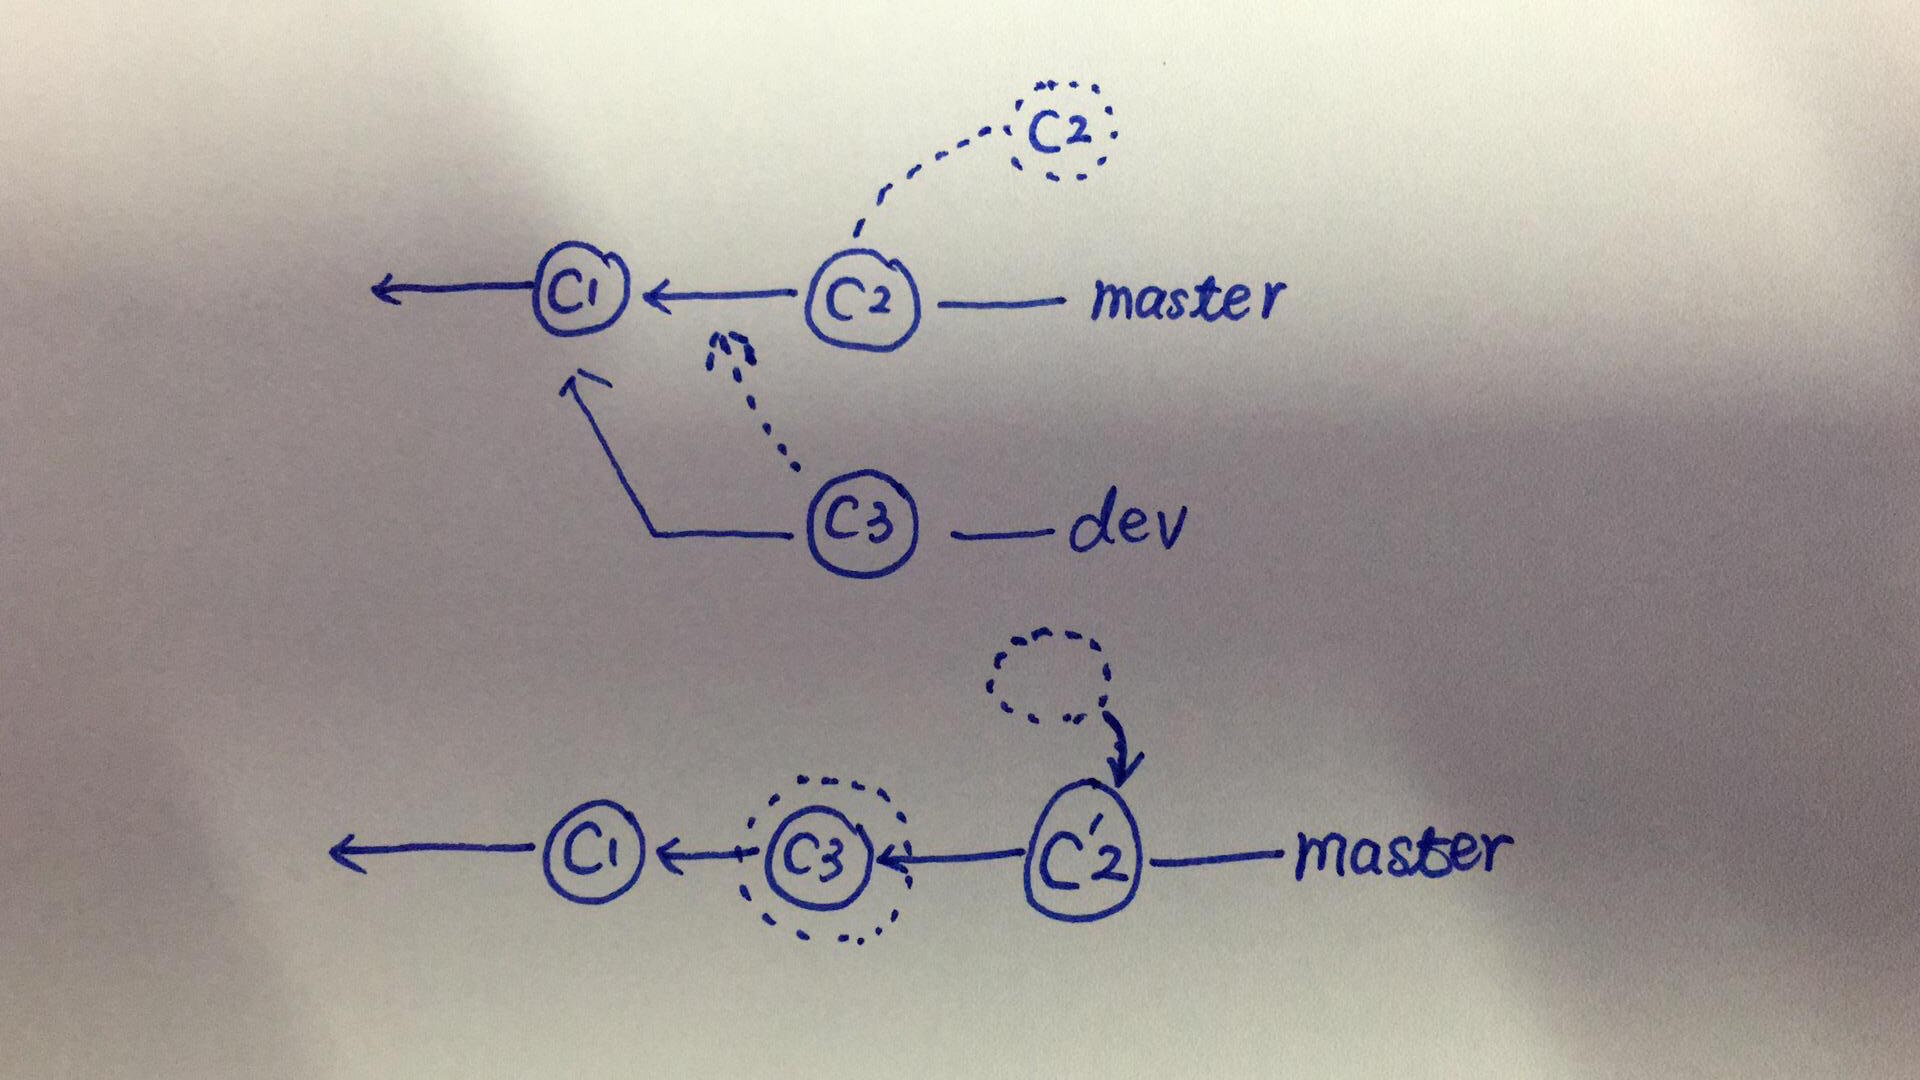 C2
C1 C2 master
C3 dev
C1 C3 C2' master